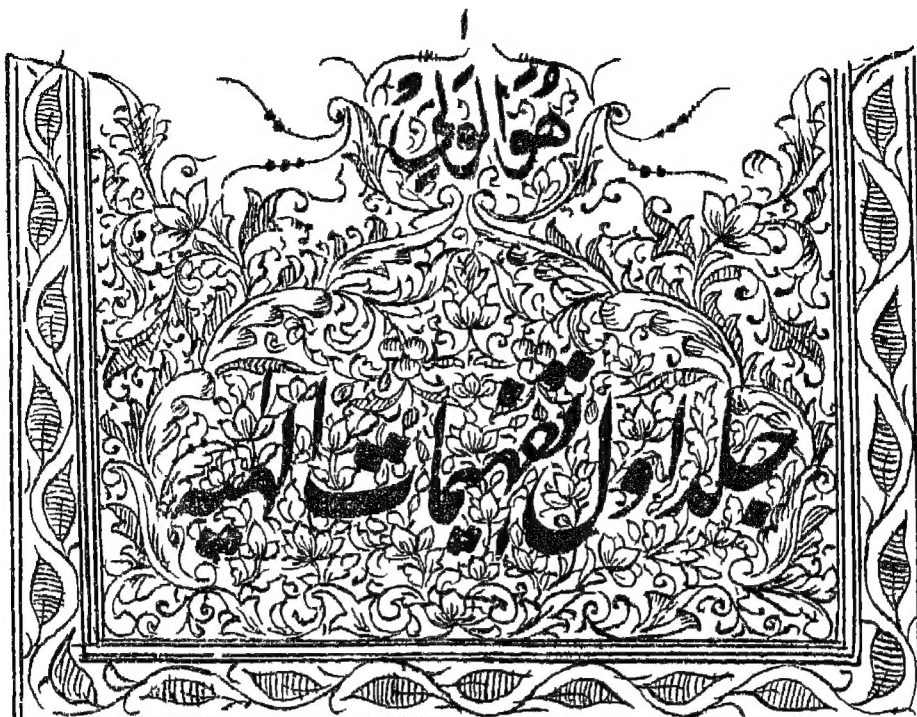 ۱
هُوَ الوَلِیُّ
جلد اول تفہیمات الہیہ